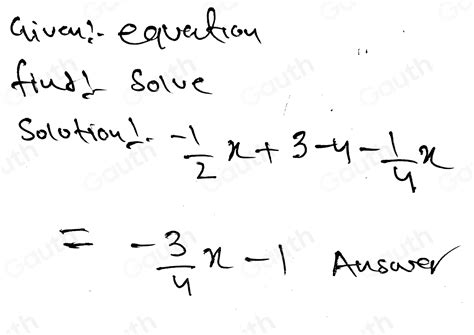 Given:- equation
find:- Solve
Solution:- -1/2 x + 3 - 4 - 1/4 x
= -3/4 x - 1 Answer